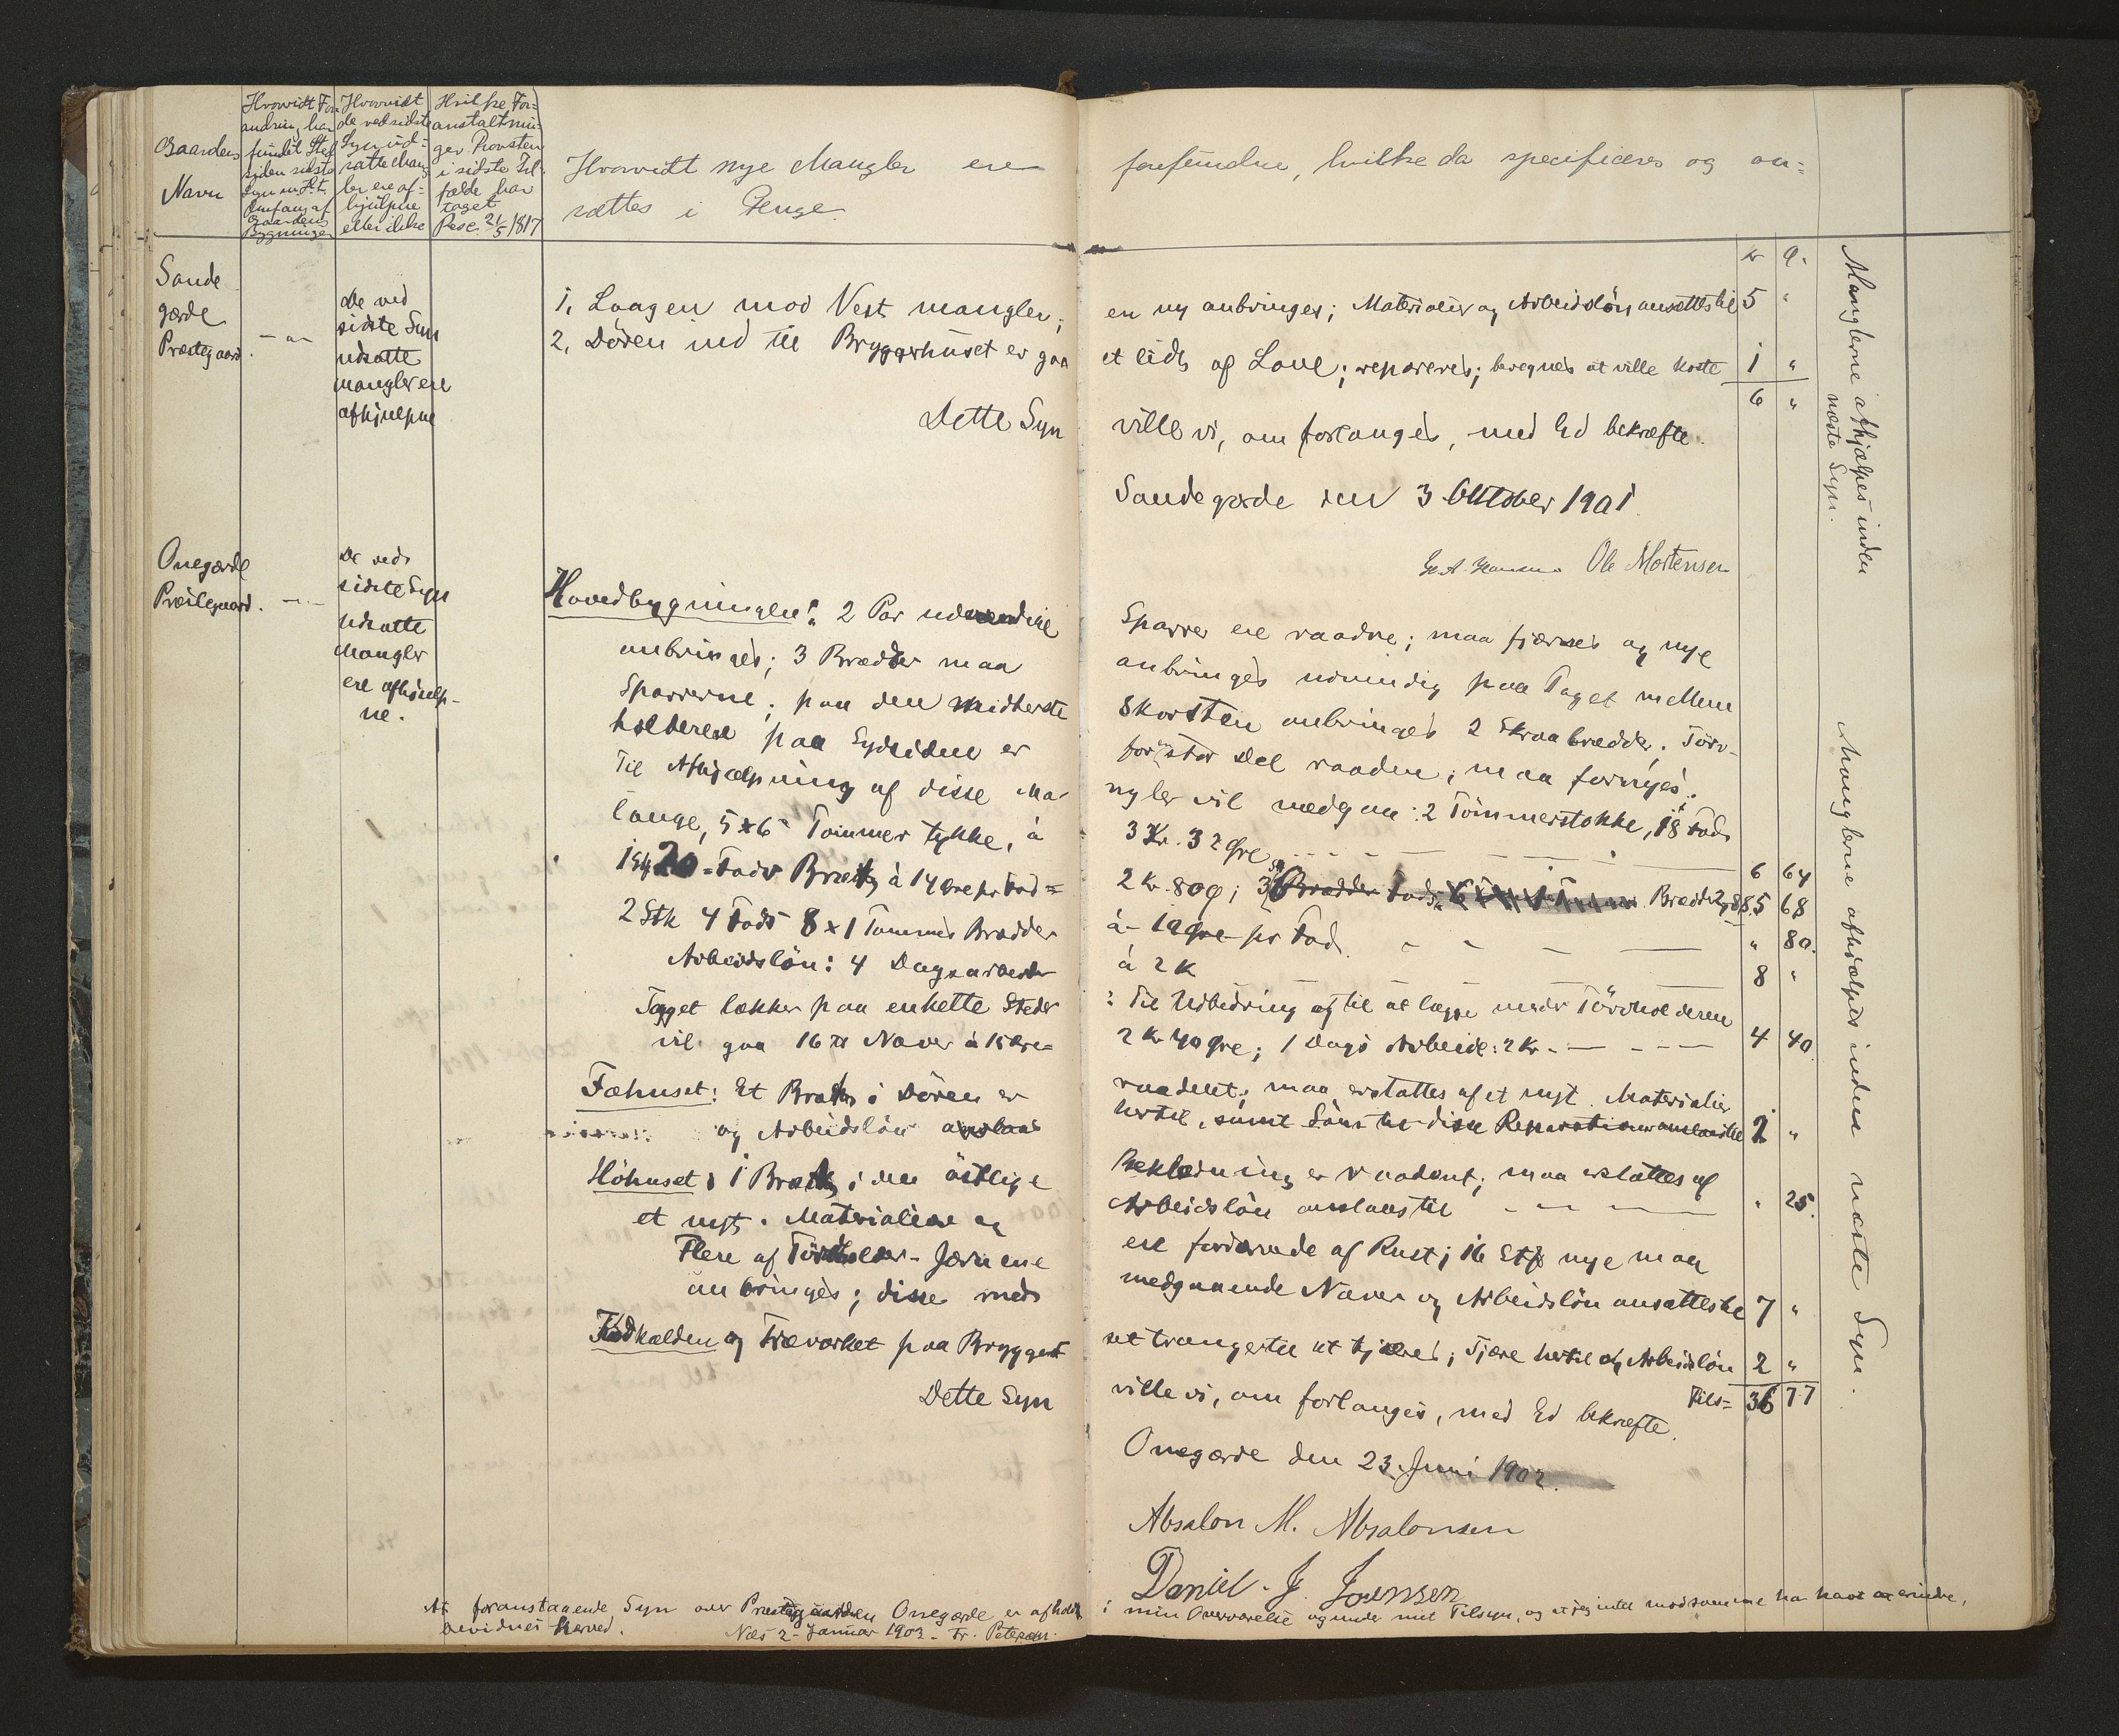 Gaardens
Navn
Hvorvidt For
andring har
fundet Sted
siden sidste
Syn m. H. t.
Omfang af
Gaardens
Bygninger
Hvorvidt
de ved sidste
Syn ud=
satte Mang
ler ere af=
hjulpne
eller ikke
Hvilke For=
anstaltnin=
ger Provsten
i sidste Til=
fælde har
taget
Resc. 21/5 1817
Hvorvidt nye Mangler ere forefundne, hvilke da specificeres og an=
sættes i Penge.
Kr Ø.
Sande
gærde
Præstegaard.
— " —
De ved
sidste Syn
udsatte
Mangler ere
afhjulpne
1, Laagen mod Vest mangler; en ny anbringes; Materialier og Arbeidsløn ansættes til 5 "
2, Døren ind til Bryggerhuset er gaa et lidt af Lave; repareres; beregnes at ville koste 1 "
6 "
Dette Syn ville vi, om forlanges, med Ed bekræfte.
Sandegærde den 3 Oktober 1901.
Ole Mortensen
Manglerne afhjælpes inden
næste Syn.
Onegærde
Præstegaard.
— " —
De ved
sidste Syn
udsatte
Mangler
ere afhjulp-
ne.
Hovedbygningen: 2 Par udvendige Sparrer ere raadne; maa fjærnes og nye
anbringes; 3 Brædder maa anbringes udvendig paa Taget mellem
Sparrerne; paa den midterste Skorsten anbringes 2 Skraabrædder. Törv-
holderen paa Sydsiden er for en stor Del raaden; maa fornyes.
Til Afhjælpning af disse Ma ngler vil medgaa: 2 Tömmerstokke, 18 Fods
lange, 5 x 6 " Tommer tykke, à 3 Kr. 32 Øre - - - 6 64
1 Stk 20 = Fods Bræt, à 14 Øre pr Fod = 2 Kr. 80 Ø; 36 Fods Brædder 2,88 5 68
2 Stk 4 Fods 8 x 1 Tommes Brædder à 10 Øre pr Fod. - - - " 80.
Arbeidsløn: 4 Dagsarbeider à 2 K 8 "
Taget lækker paa enkelte Steder: Til Udbedring og til at lægge under Törvholderen
vil gaa 16 ℔ Næver à 15 Øre = 2 Kr 40 Øre; 1 Dags Arbeide: 2 Kr. - - - 4 40
Fæhuset: Et Bræt i Dören er raadent; maa erstattes af et nyt. Materialier
og Arbeidslön anslaas hertil, samt Söm til disse Reparationer anslaaes til 2 "
Höhuset: 1 Bræt i den östlige Beklædning er raadent; maa erstattes af
et nyt. Materialier og Arbeidslön anslaaes til - - - " 25.
Flere af Törvholder-Jærnene ere fordærvede af Rust; 16 Stk nye maa
anbringes; disse med medgaaende Næver og Arbeidslön ansættes til 7 "
og Træværket paa Brygger set trænger til at tjæres; Tjære hertil og Arbeidslön 2 "
Tils = 36 77
Dette Syn ville vi, om forlanges, med Ed bekræfte.
Onegærde den 23. Juni 1902.
Absalon M. Absalonsen
Daniel J. Joensen
Manglerne afhjælpes inden næste Syn.
At foranstaaende Syn over Præstegaarden Onegærde er afholdt i min Overværelse og under mit Tilsyn, og at jeg intet mod samme har havt at erindre,
bevidnes herved. Næs 2. Januar 1903. Fr. Petersen.